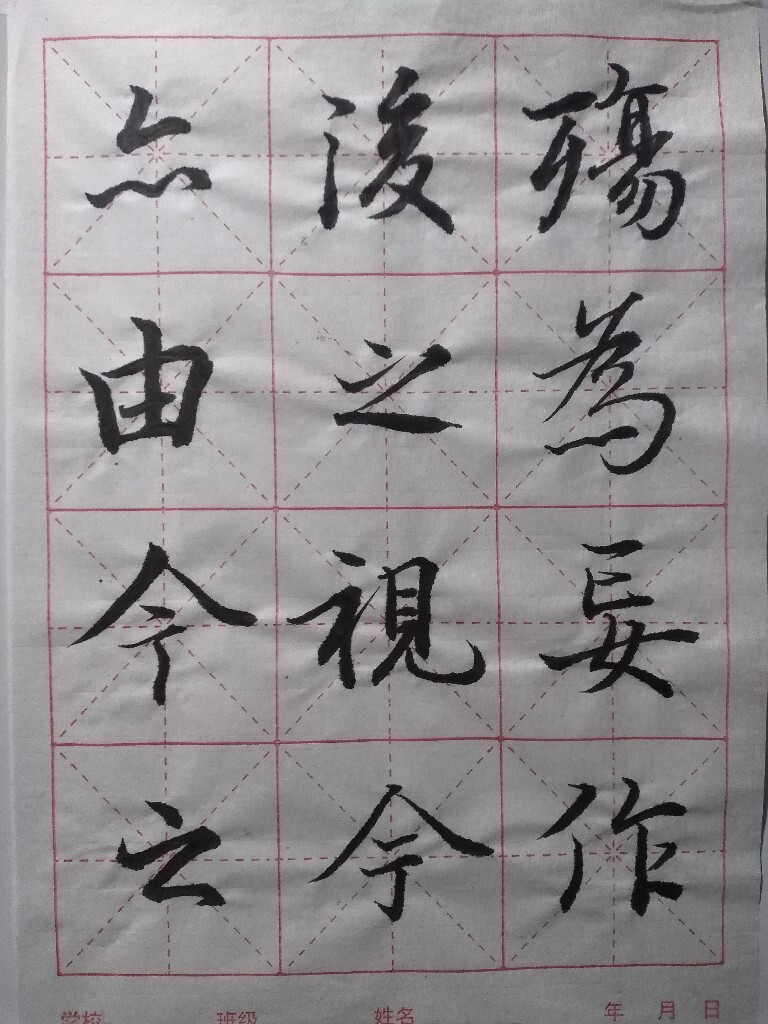 殤為妄作
後之視今
亦由今之
学校 班级 姓名 年 月 日